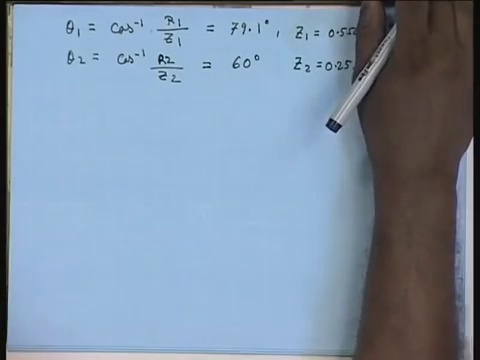 θ₁ = cos⁻¹ R₁/Z₁ = 79.1°, Z₁ = 0.55
θ₂ = cos⁻¹ R₂/Z₂ = 60° Z₂ = 0.25